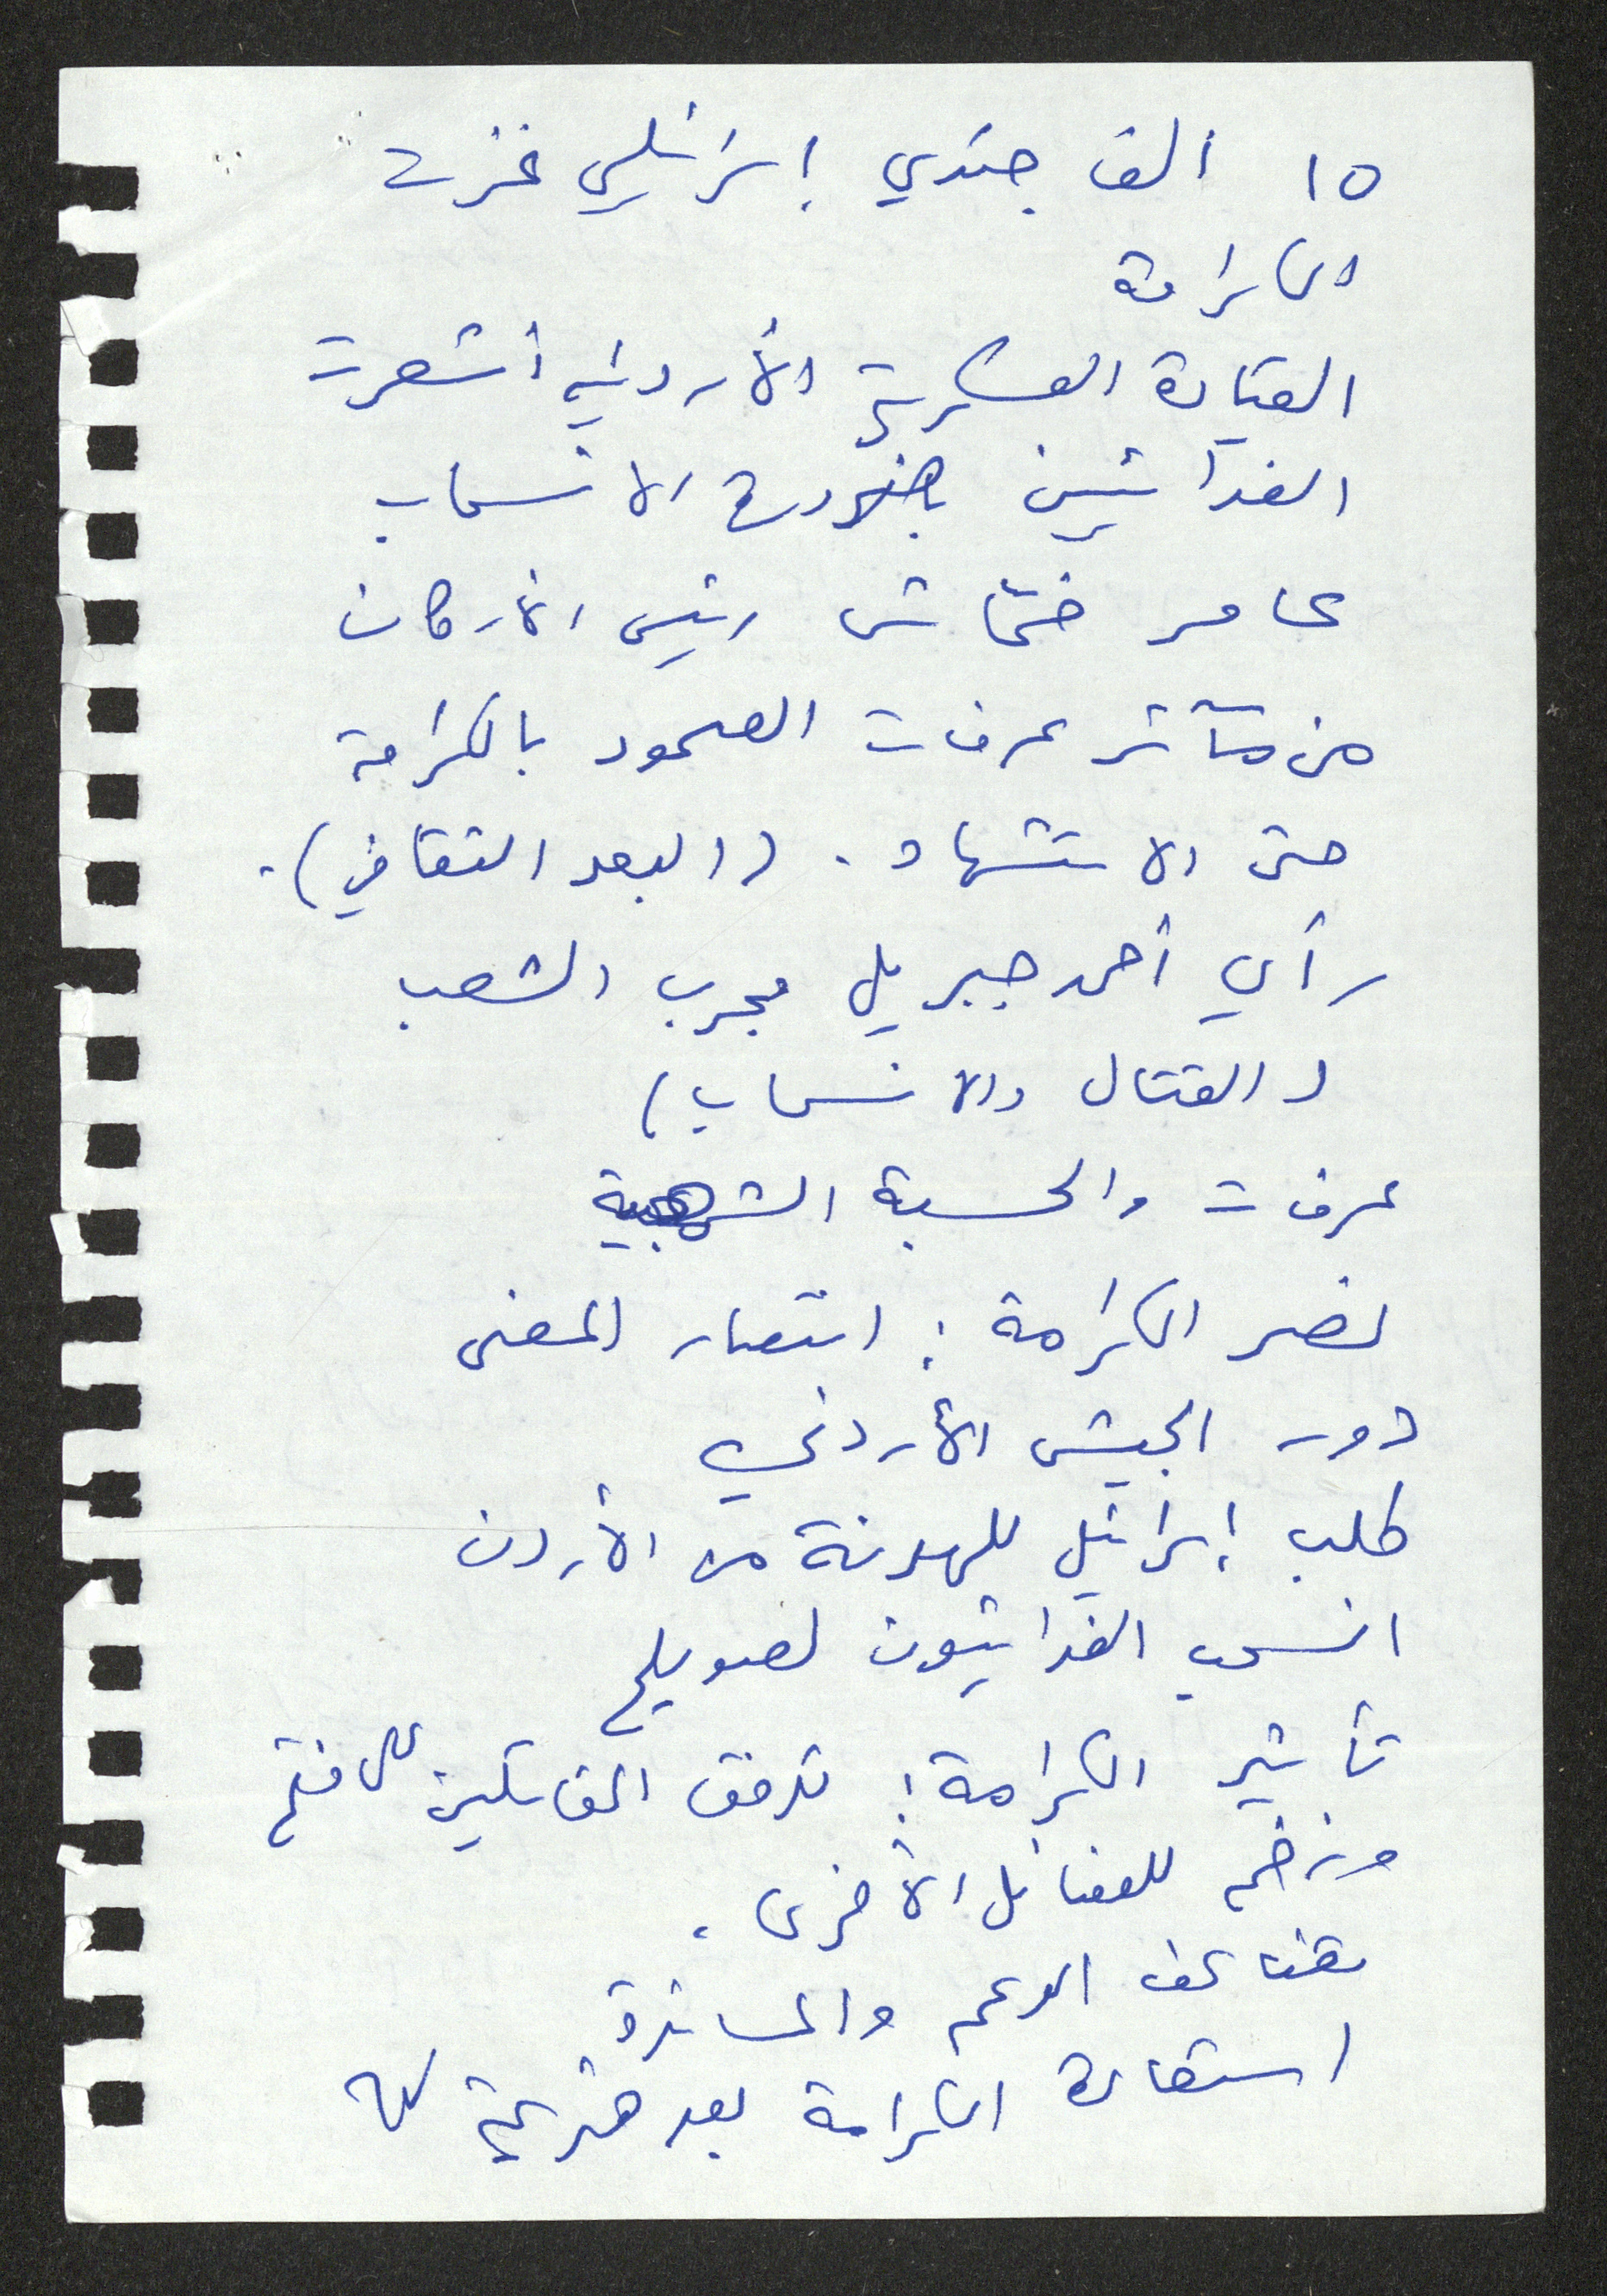 ١٥ ألف جندي إسرائيلي غزت
الكرامة
القيادة العسكرية الأردنية أشعرت
الفدائيين بضرورة الانسحاب
عامر خمّاش رئيس الأركان
من مآثر عرفات الصمود بالكرامة
حتى الاستشهاد. (البعد الثقافي).
رأي أحمد جبريل مجرب الشعب
(القتال والانسحاب)
عرفات والحسبة الشعبية
نصر الكرامة: انتصار المعنى
دور الجيش الأردني
طلب إسرائيل للهدنة من الأردن
انسحب الفدائيون لصويلح
تأثير الكرامة: تدفق المقاتلين لفتح
وزخم للفصائل الأخرى.
تضاعف الدعم والمساندة
استعادة الكرامة بعد هزيمة